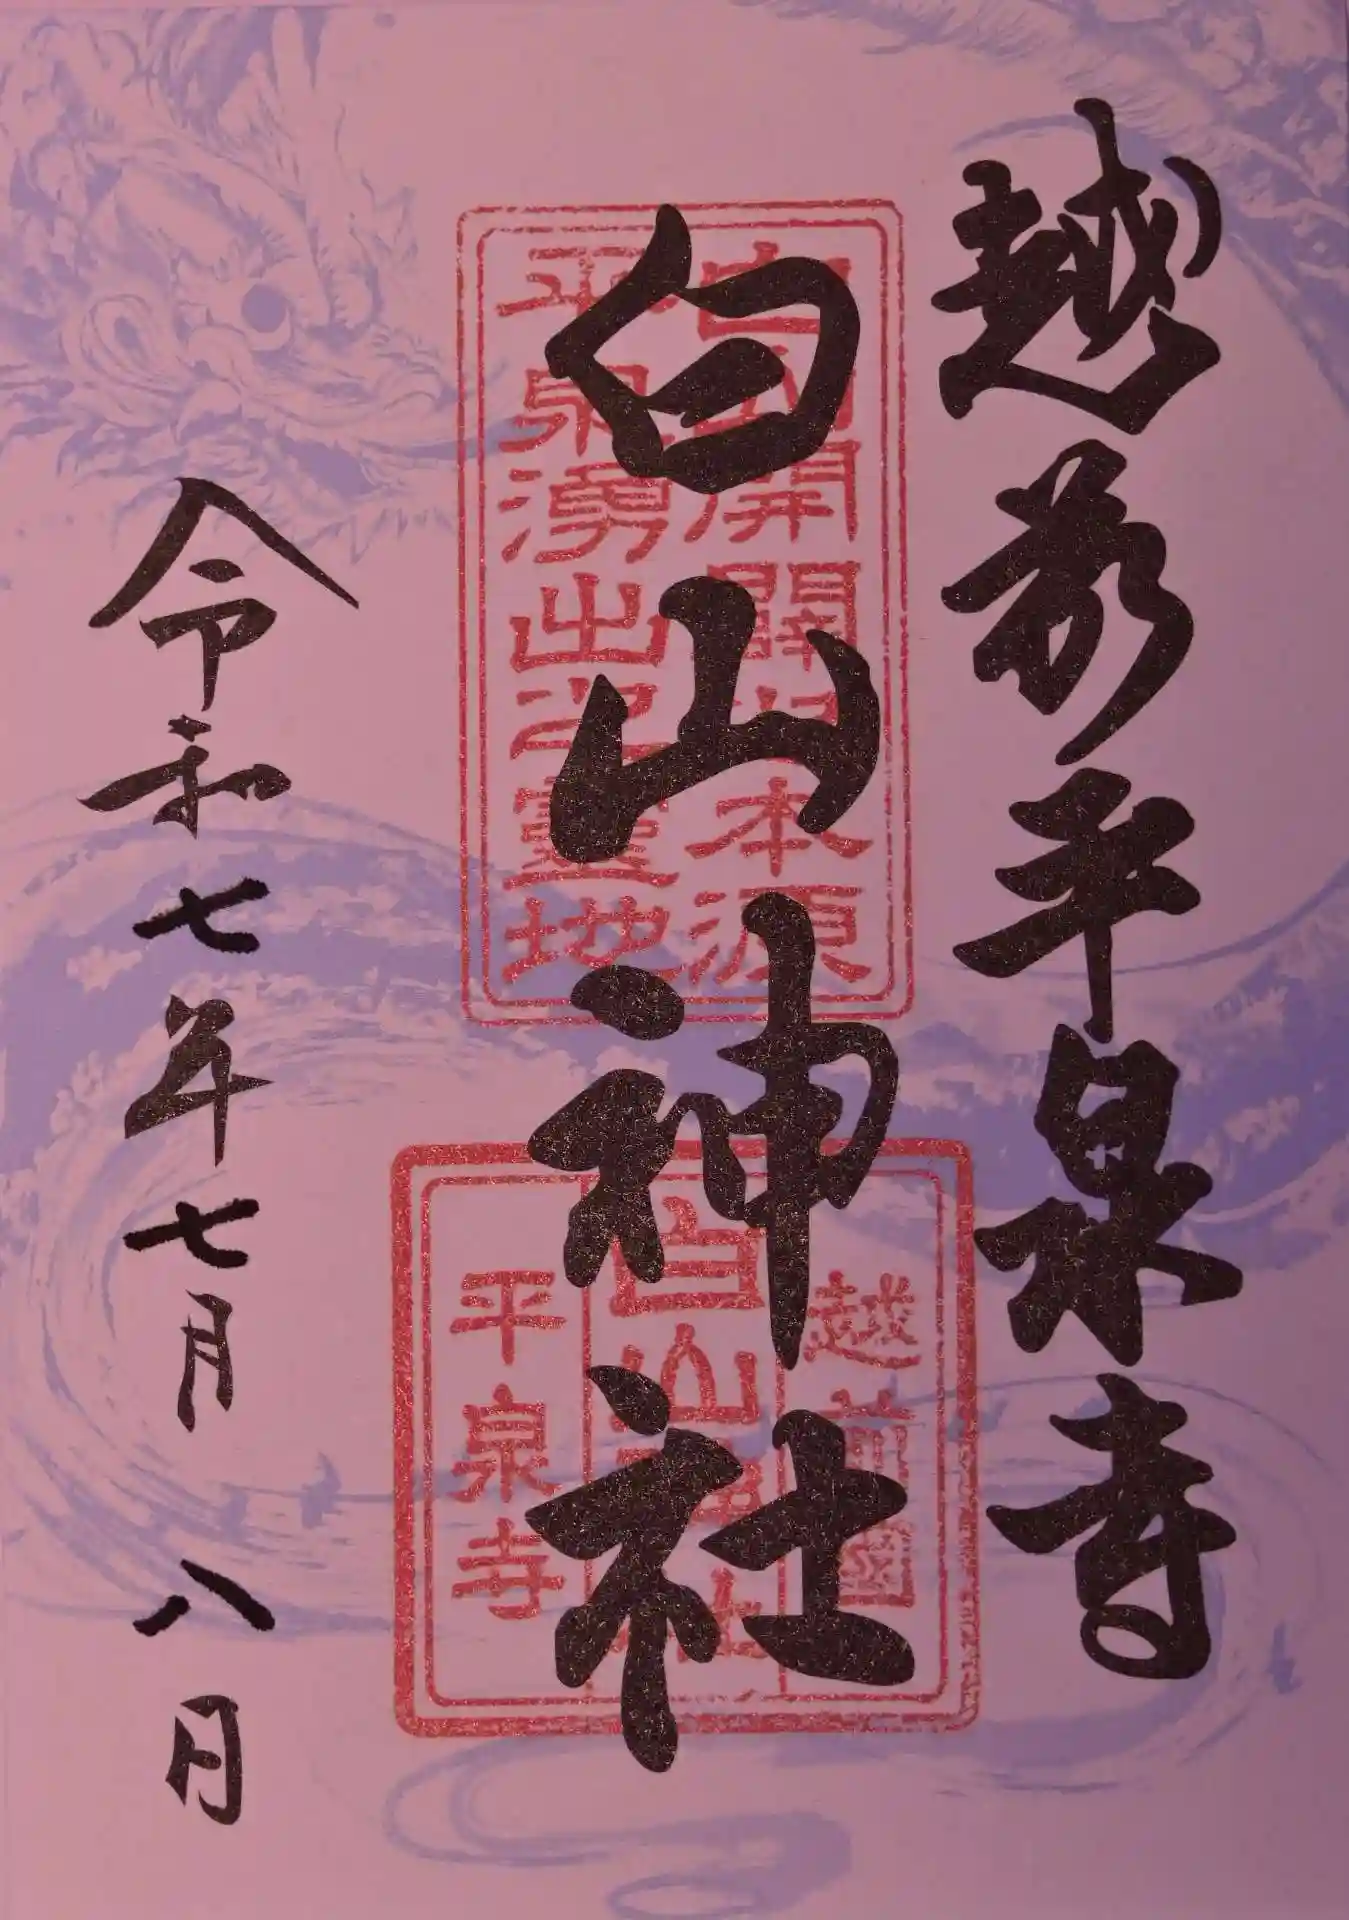 越前平泉寺
白山神社
開闢之本源
平泉湧出之霊地
越前國
白山神社
平泉寺
令和七年七月八日